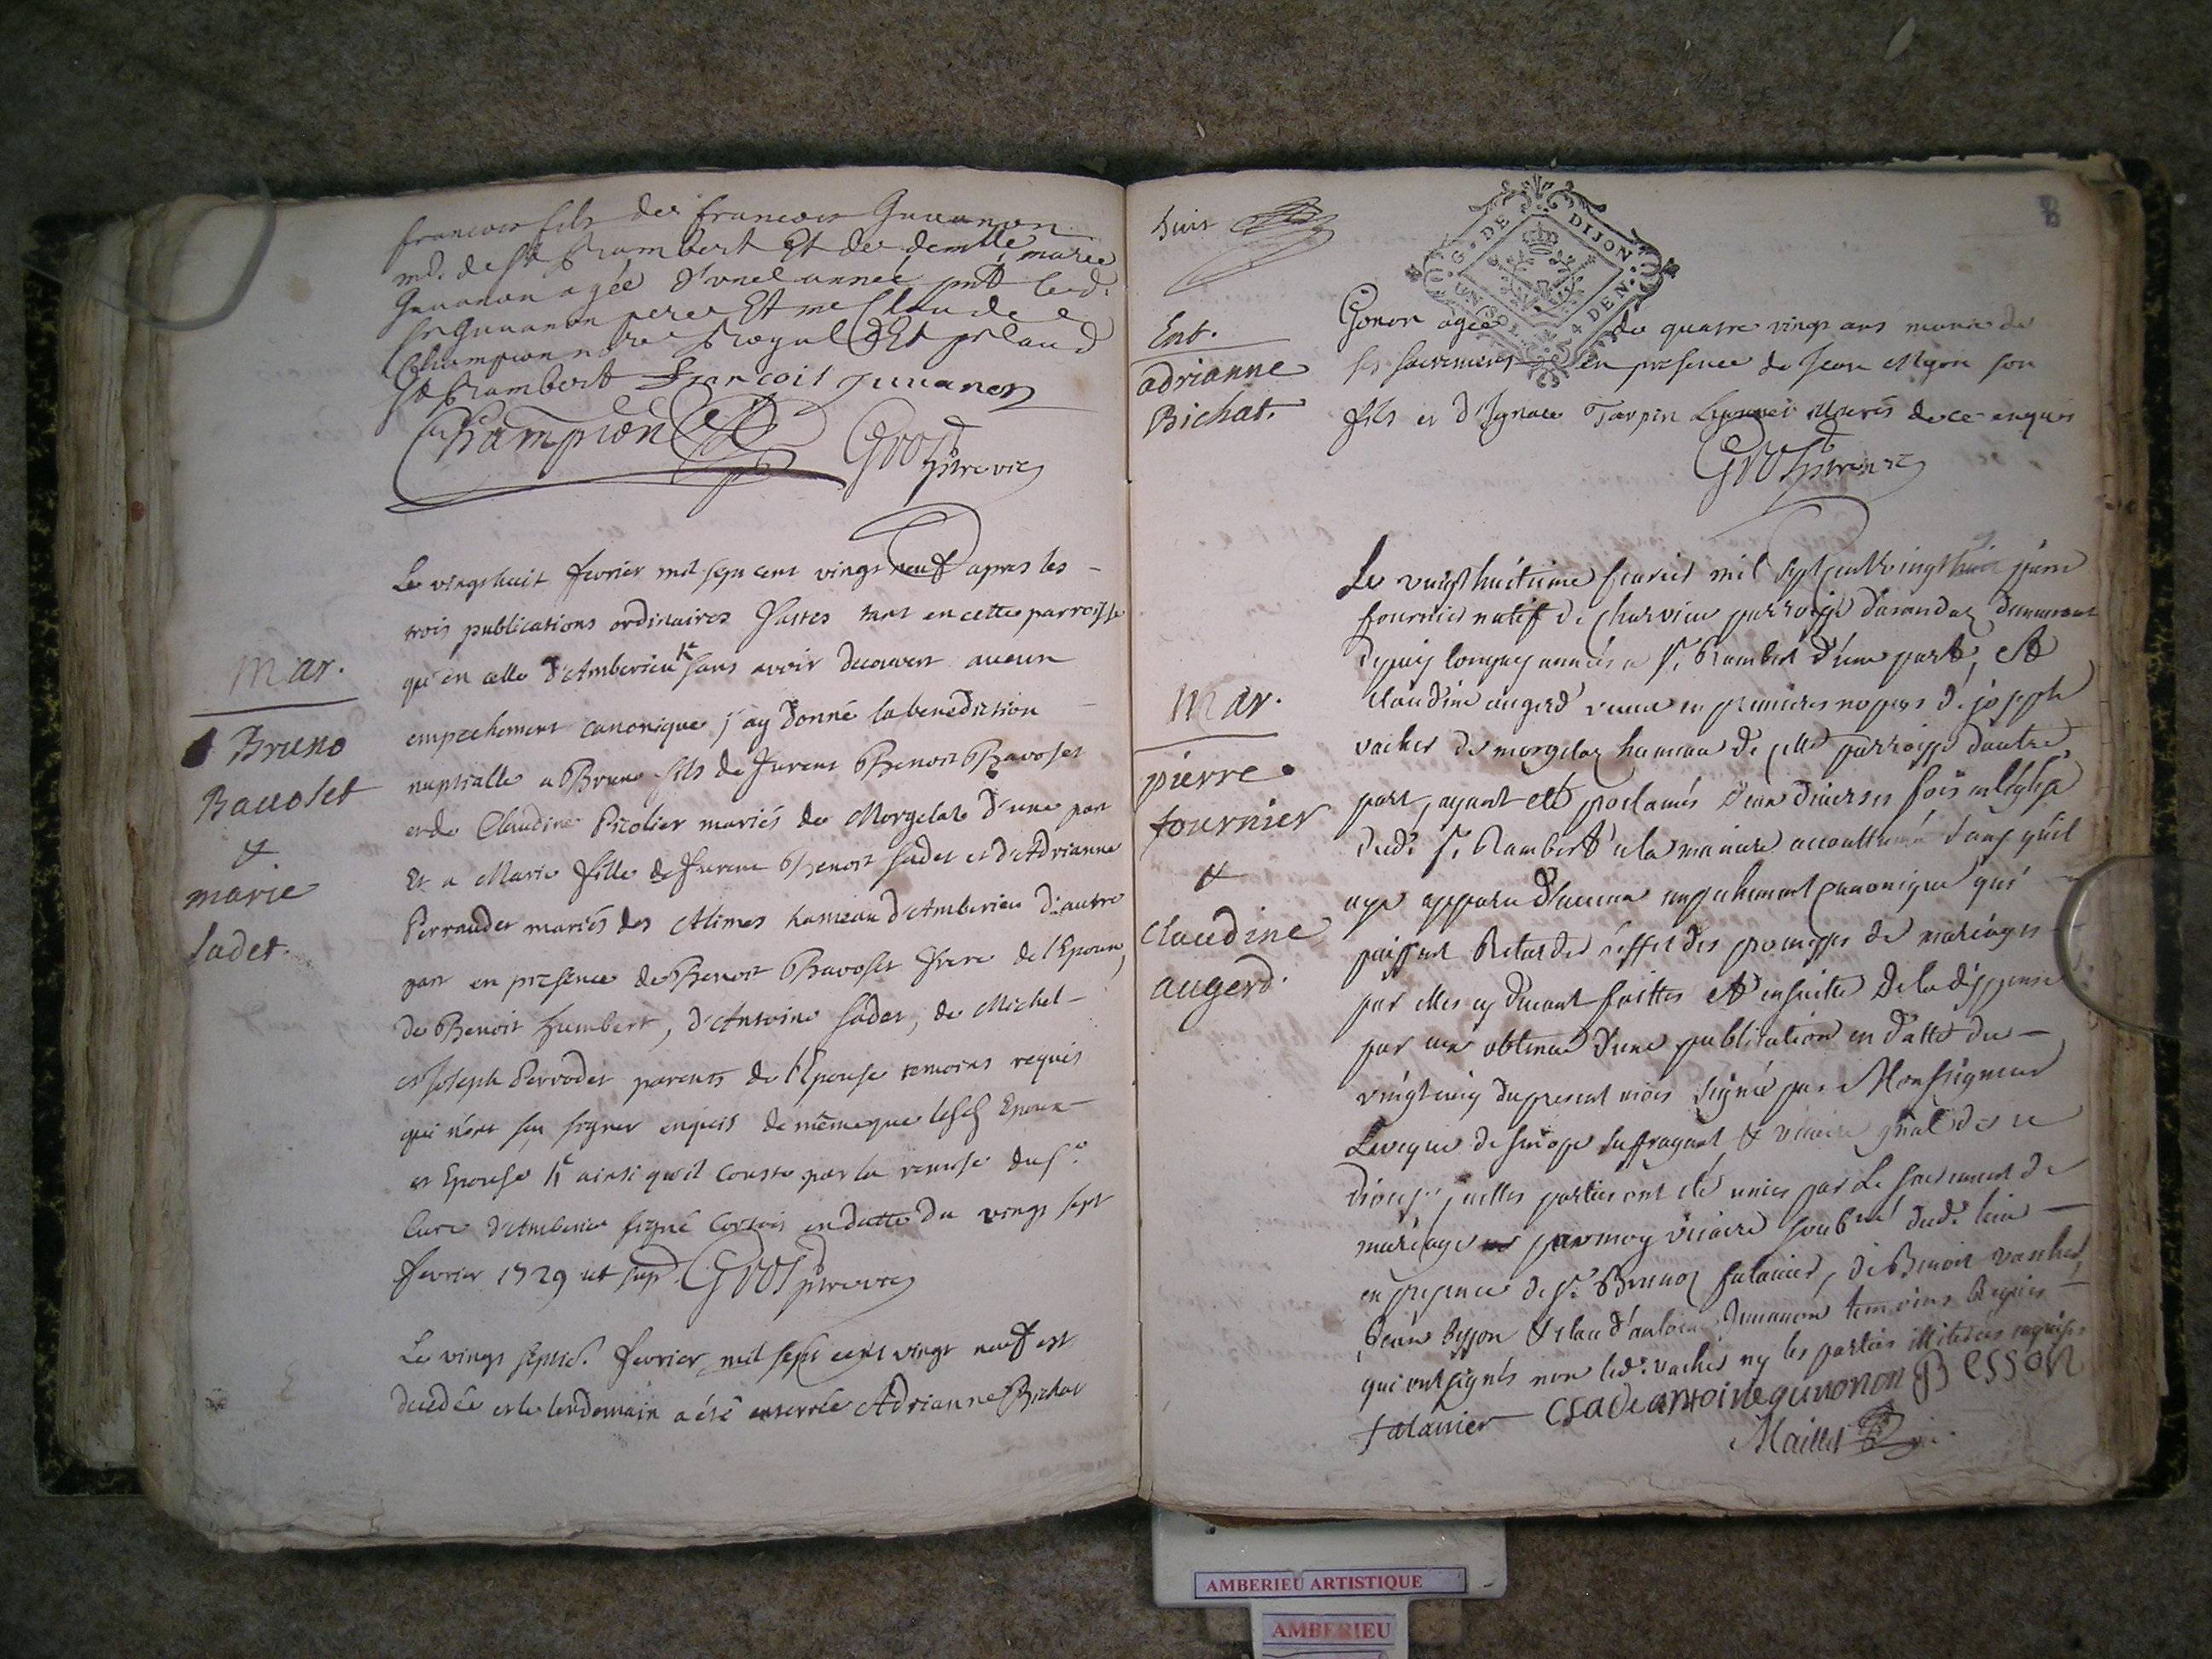 francois fils de francois Guuanon
md. de St Rambert Et de demlle marie
Guuanon agée d'une année pnt led.
Sr Guuanon pere Et me Claude
Champion nore Royal Et
St Rambert francois guuanon
Champion Gros pbre vic
Mar.
Bruno
Bauoset
&
marie
sadet.
Le vingt huit fevrier mil sept cent vingt neuf apres les
trois publications ordinaires faites tant en cette parroisse
qu'en celle d'Amberieu sans avoir decouvert aucun
empechement canonique j'ay donné la benediction
nuptialle a Bruno fils de furent Benoit Bavoset
et de Claudine Picolier mariés de Morgelas d'une part
Et a Marie fille de furent Benoit Sadet et d'Adrianne
Perraudet mariés des Alimes hameau d'Amberieu d'autre
part en presence de Benoit Bavoset frere de l'Epoux,
de Benoit humbert, d'Antoine Sadet, de Michel
et Joseph Perrodet parents de l'Epouse temoins requis
qui n'ont sçu signer enquis de même que lesd Epoux
et Epouse ainsi qu'il conste par la remise du Sr
Curé d'Amberieu signé en datte du vingt sept
fevrier 1729 ut sup Gros pbre vic
Le vingt septie. fevrier mil sept cent vingt neuf est
decedée et le lendemain a été enterrée Adrianne Bichat
huit
8
G. DE DIJON.
UN SOL 4 DEN.
Ent.
adrianne
Bichat.
Gonon agée de quatre vingt ans munie de
ses sacrements en presence de Jean son
fils et d'Ignace Tarpin de ce enquis
Gros pbre vic
Mar.
pierre
fournier
&
Claudine
augerd.
Le vingt huitieme fevrier mil sept cent vingt pierre
fournier natif de Charvieu parroisse d'arandaz demeurant
depuis longues années a St Rambert d'une part, Et
Claudine augerd veuve en premieres nopces de joseph
vacher de morgelaz hameau de cette parroisse d'autre
part, ayant eté proclamés deux diverses fois en l'église
dud. St Rambert a la maniere accoutumée sans qu'il
aye apparu d'aucun empechement canonique qui
puissent retarder l'effet des promesses de mariages
par elles cy devant faittes Et ensuitte De la dispense
par eux obtenue d'une publication en datte du
vingt cinq du present mois signée par Monseigneur
Leveque de sinope suffragant & vicaire gnal de ce
diocese icelles parties ont eté unies par Le sacrement de
mariage par moy vicaire soubsné dud. lieu
en presence de Sr Bruno falavier, de Benoit vacher,
Jean besson & claud'antoine Juuanon temoins Requis
qui ont signés non led. vacher ny les parties illiterées requises
falavier Claude antoine guuonon Besson
Maillet
AMBERIEU ARTISTIQUE
AMBERIEU